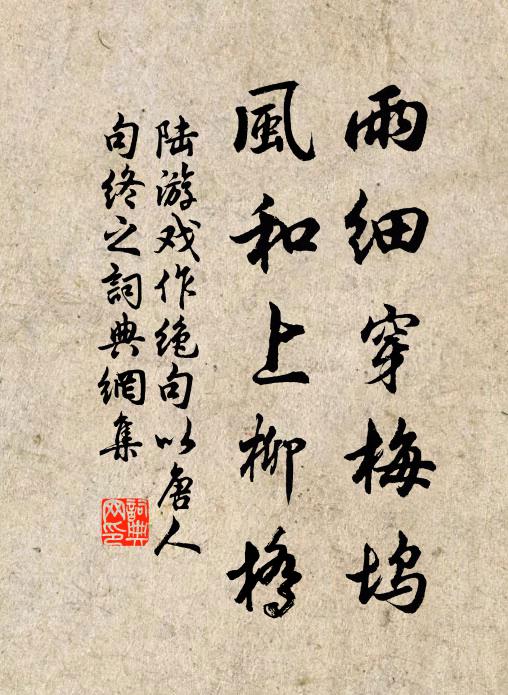 雨细穿梅坞
風和上柳橋
陆游戏作绝句以唐人
句终之詞典網集
詞典网印